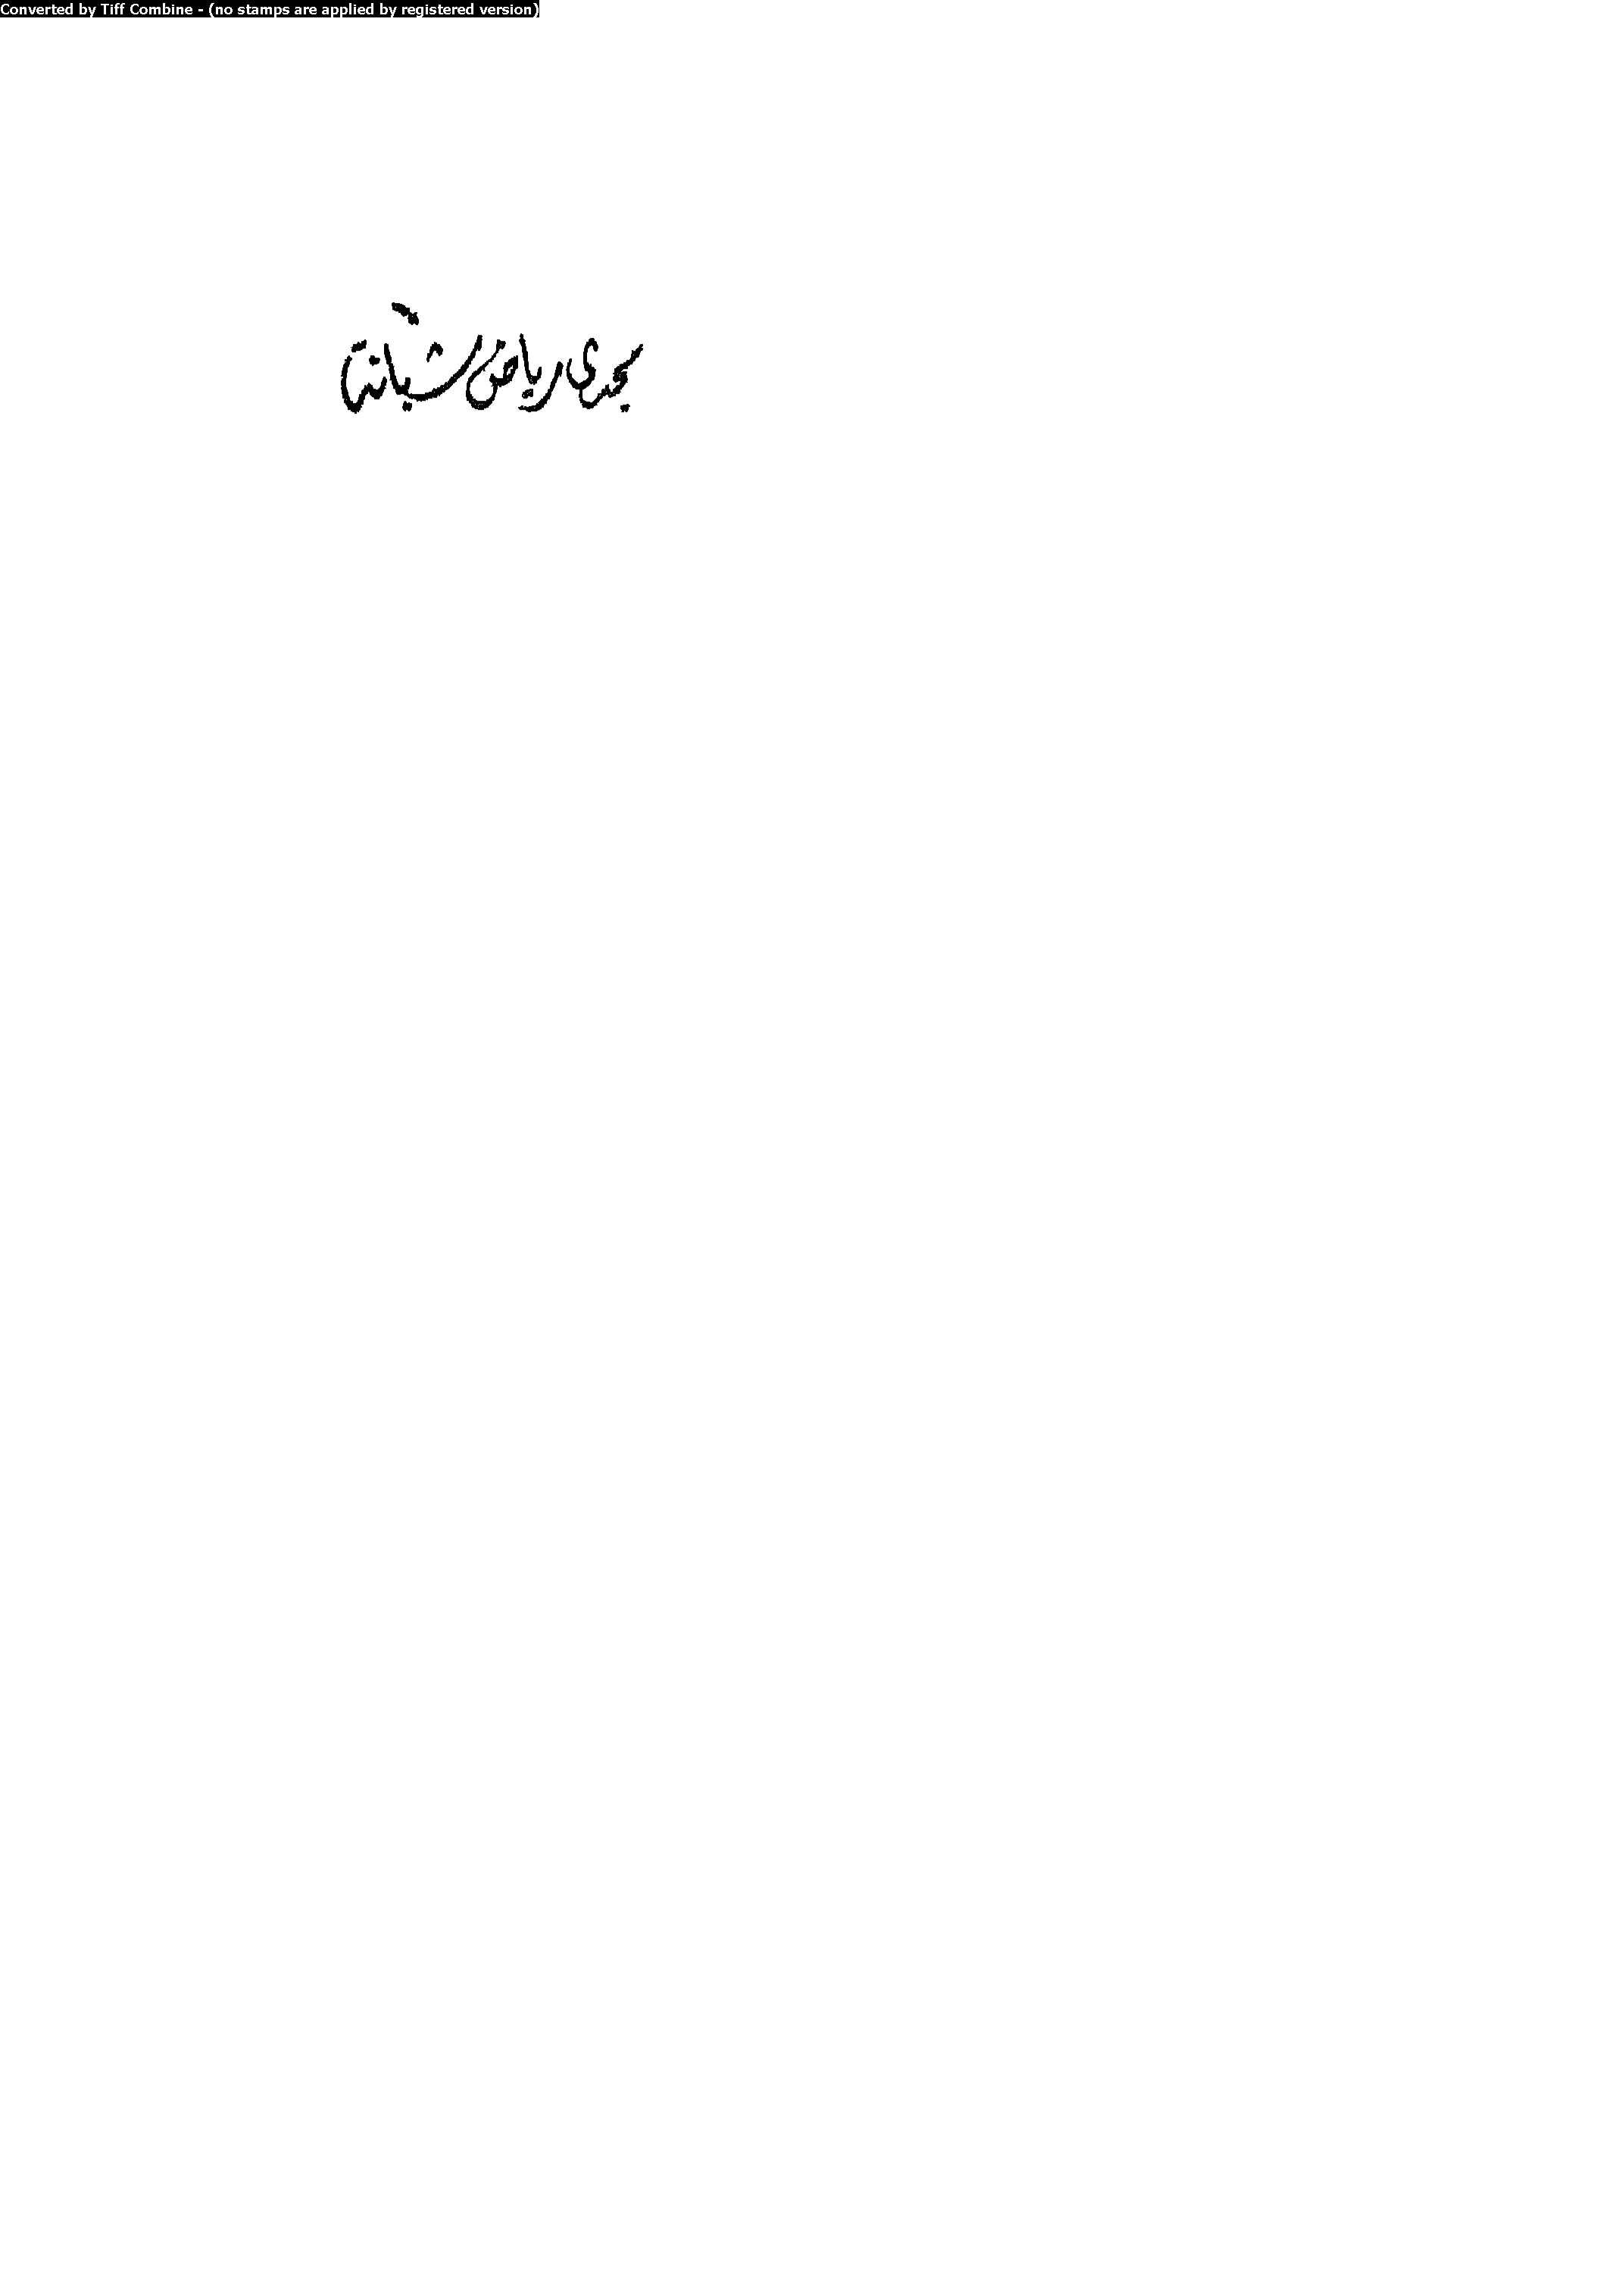 Converted by Tiff Combine - (no stamps are applied by registered version)
مجدى رياض شبانة